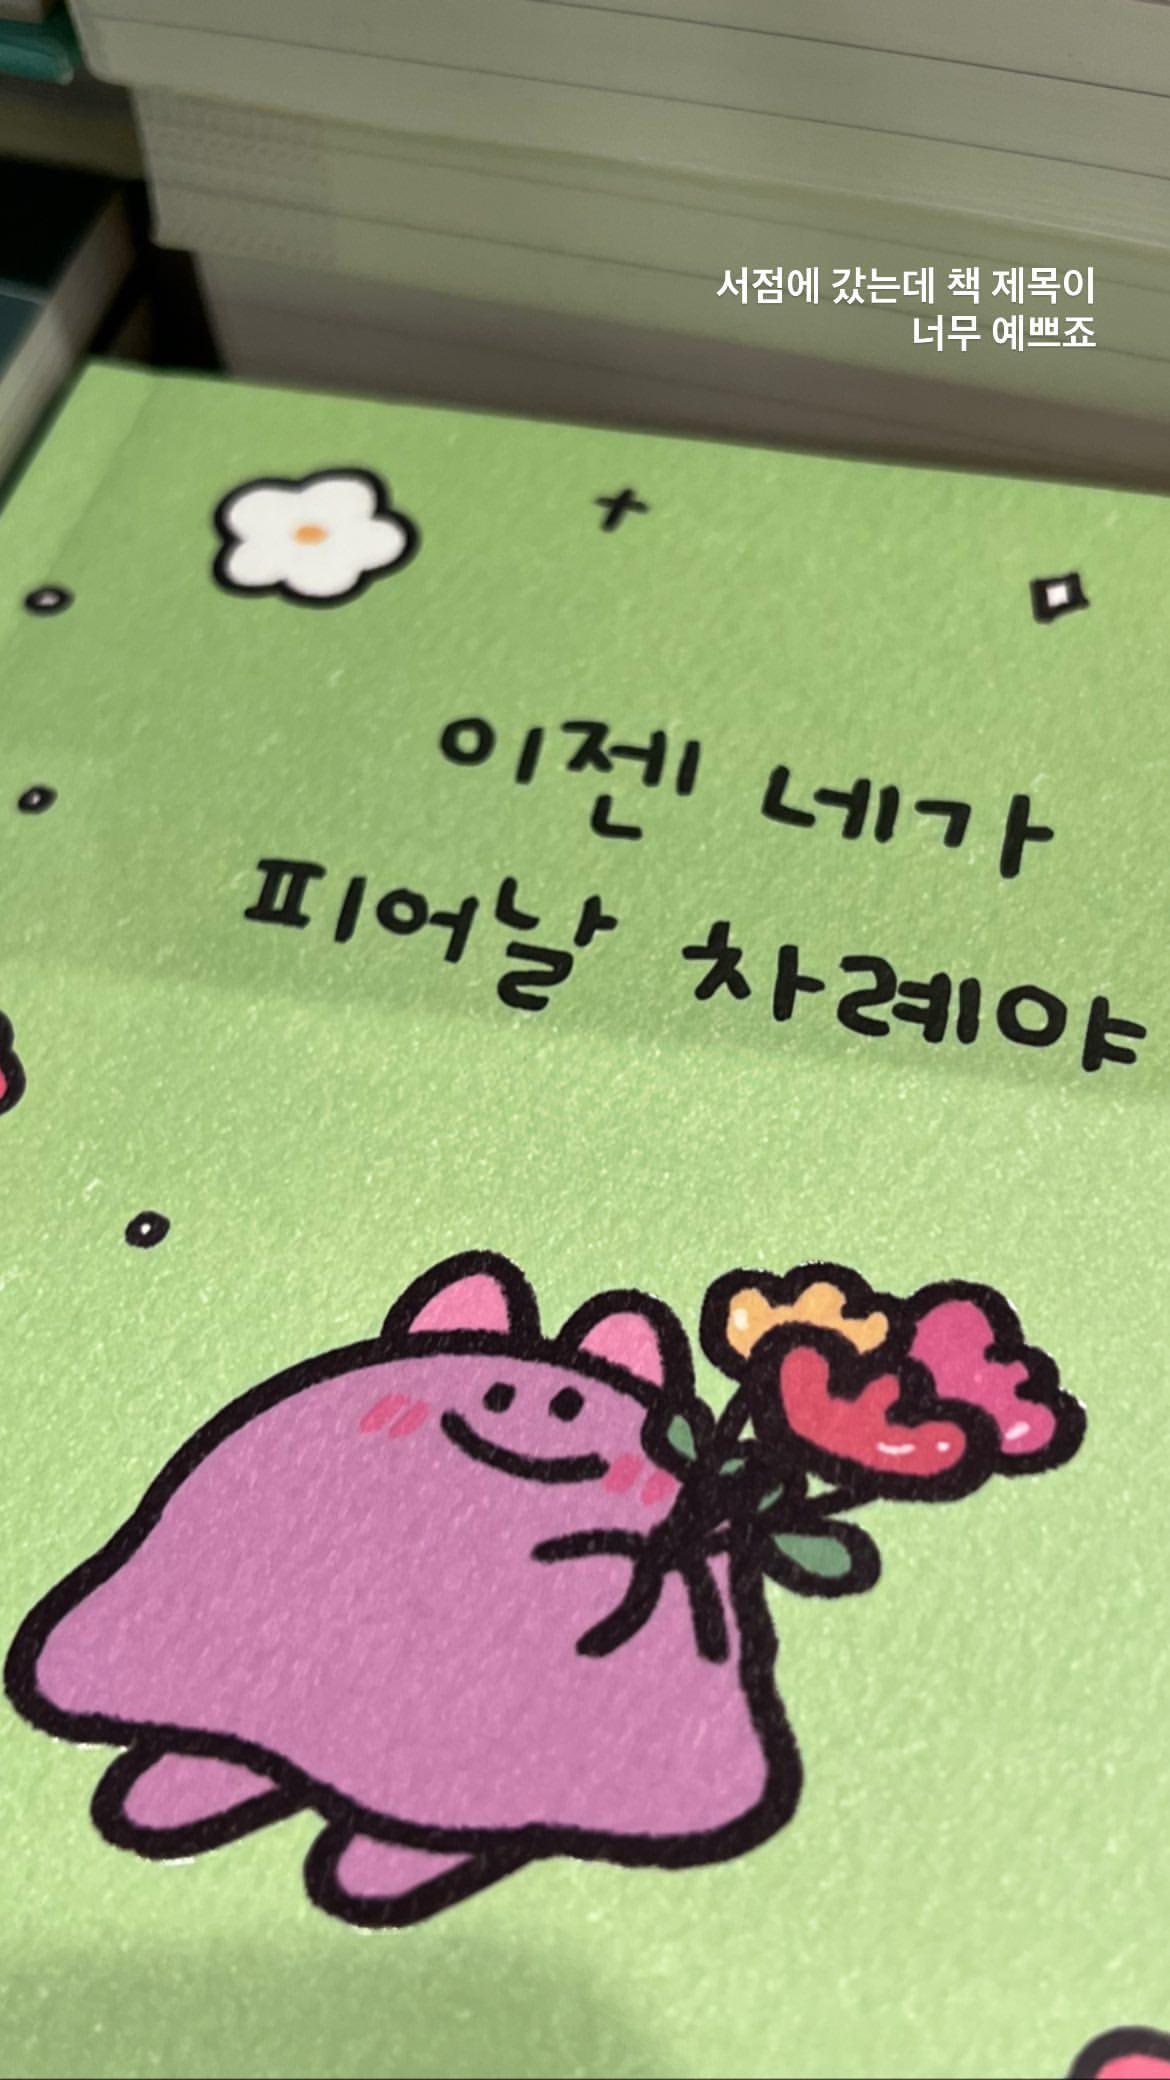 서점에 갔는데 책 제목이
너무 예쁘죠
이젠 네가
피어날 차례야